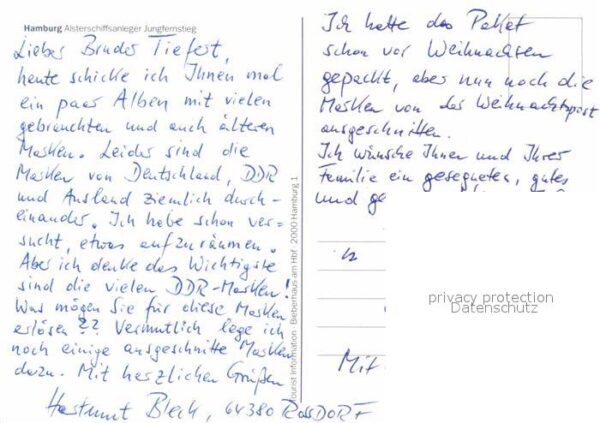 Hamburg Alsterschiffsanleger Jungfernstieg
Lieber Bruder Tiefert,
heute schicke ich Ihnen mal
ein paar Alben mit vielen
gebrauchten und auch älteren
Marken. Leider sind die
Marken von Deutschland, DDR
und Ausland ziemlich durch-
einander. Ich habe schon ver-
sucht, etwas aufzuräumen.
Aber ich denke das Wichtigste
sind die vielen DDR-Marken!
Was mögen Sie für diese Marken
erlösen?? Vermutlich lege ich
noch einige ausgeschnitte Marken
dazu. Mit herzlichen Grüßen
Hartmut Blech, 64380 RoßDORF
Tourist Information · Bieberhaus am Hbf · 2000 Hamburg 1
Ich hatte das Paket
schon vor Weihnachten
gepackt, aber nun noch die
Marken von der Weihnachtspost
ausgeschnitten.
Ich wünsche Ihnen und Ihrer
Familie ein gesegnetes, gutes
und ge
Mit
privacy protection
Datenschutz